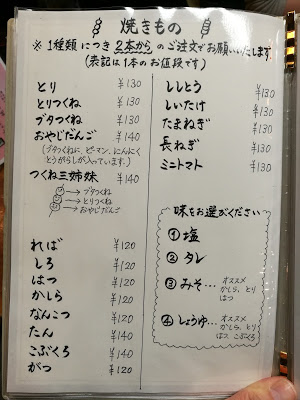 焼きもの
※1種類につき2本からのご注文でお願いいたします
(表記は1本のお値段です)
とり ¥130
とりつくね ¥130
ブタつくね ¥130
おやじだんご ¥140
(ブタつくねに、ピーマン、にんにく
とうがらしが入っています。)
つくね三姉妹 ¥140
→ブタつくね
→とりつくね
→おやじだんご
れば ¥120
しろ ¥120
はつ ¥120
かしら ¥120
なんこつ ¥120
たん ¥140
こぶくろ ¥140
がつ ¥120
ししとう ¥130
しいたけ ¥130
たまねぎ ¥130
長ねぎ ¥130
ミニトマト ¥130
味をお選びください
①塩
②タレ
③みそ…オススメ
かしら、とり
はつ
④しょうゆ…オススメ
かしら、とり
はつ こぶくろ